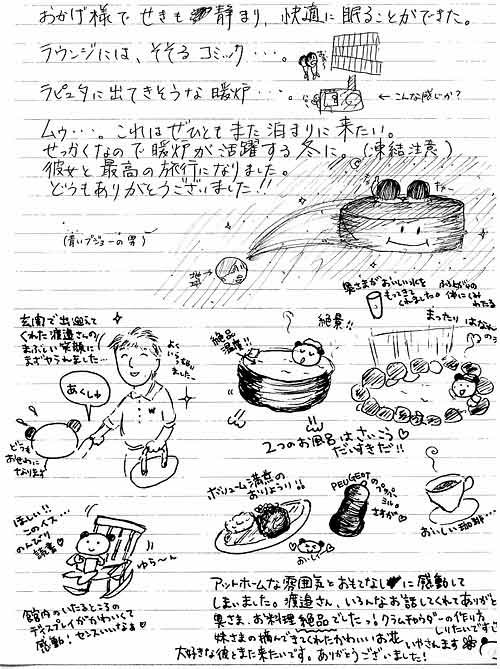 おかげ様で せきも 静まり、快適に 眠ることができた。
ラウンジには、そそる コミック・・・。
ラピュタに出てきそうな 暖炉・・・。
←こんな感じか?
ムゥ・・・。これはぜひとも また 泊まりに 来たい。
せっかくなので 暖炉が 活躍する 冬に。(凍結注意)
彼女と 最高の旅行になりました。
どうもありがとうございました!!
(青いプジョーの男)
地球
奥さまがおいしい水を
もってきて
くれました。
まったり はなれ
玄関で出迎えて
くれた渡邉さんの
まぶしい笑顔に
まずやられました…
よく
いらっしゃい
ましたー
あくしゅ
どうも
おせわに
なります
絶品
温度!!
絶景!!
2つのお風呂はさいこう
だいすきだ!!
ほしい!!
このイス…
のんびり
読書
ゆら〜ん
館内のいたるところの
ディスプレイがかわいくて
感動!センスいいなぁ
ボリューム満点の
おりょうり!!
おいしい
PEUGEOT
のペッパー
ミル。
さすが
おいしい珈琲…
アットホームな雰囲気と おもてなしに 感動して
しまいました。渡邉さん、いろんなお話してくれてありがと
奥さま、お料理絶品でしたっ!クラムチャウダーの作り方
しりたいですじ
妹さまの摘んできてくれたかわいいお花
いやさんます
大好きな彼とまた来たいです。ありがとうございました!